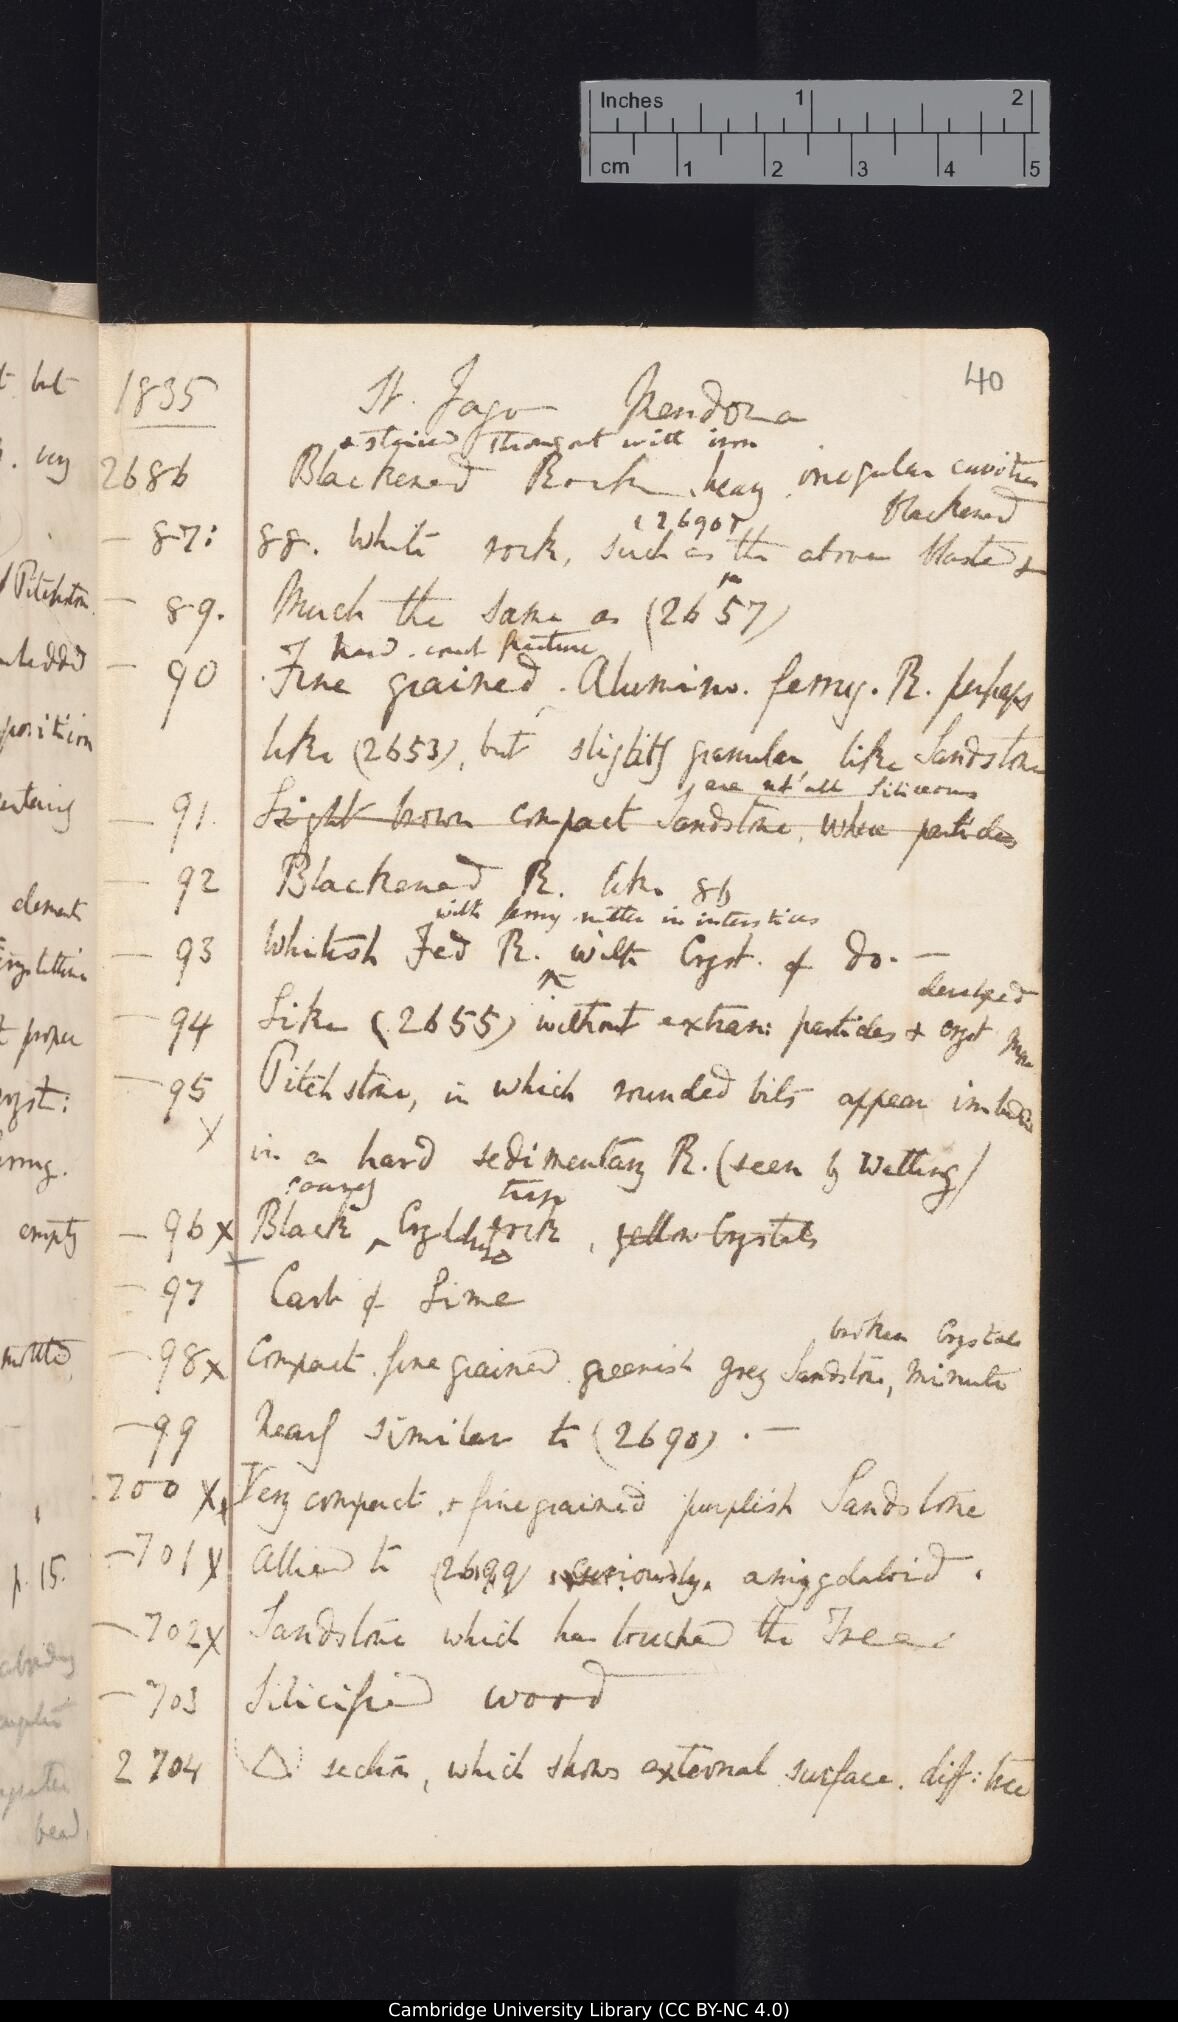 Inches 1 2
cm 1 2 3 4 5
40
1835 St. Jago Mendoza
& stained throughout with iron
2686 Blackened Rock heavy irregular cavities
blackened
(2690?)
— 87: 88. White rock, such as the above &
— 89. Much the same as (2657)
hard. fracture
— 90 Fine grained. Alumino. ferrug. R. perhaps
like (2653), but slightly granular, like Sandstone
are not all Siliceous
— 91. Light brown compact Sandstone, where particles
— 92 Blackened R. like 86
with ferrug. matter in interstices
— 93 Whitish Fed R. with Cryst. of do. —
— 94 Like (2655) without extran: particles & cryst more
— 95 Pitchstone, in which rounded bits appear imbedded
X in a hard sedimentary R. (seen by Wetting)
— 96 X Black rock, yellow Crystals
— 97 Carb of Lime
broken Crystals
— 98 X Compact fine grained greenish grey Sandstone, minute
— 99 Nearly similar to (2690). —
2700 X Very compact & fine grained purplish Sandstone
— 701 X Allied to (2699) curiously amygdaloid.
— 702 X Sandstone which has touched the Trees
— 703 Silicified wood
2704 △ section, which shows external surface. diff: tree
t but
very
Pitchstone
imbedded
position
element
proper
cryst:
ferrug.
empty
p. 15.
bead
Cambridge University Library (CC BY-NC 4.0)